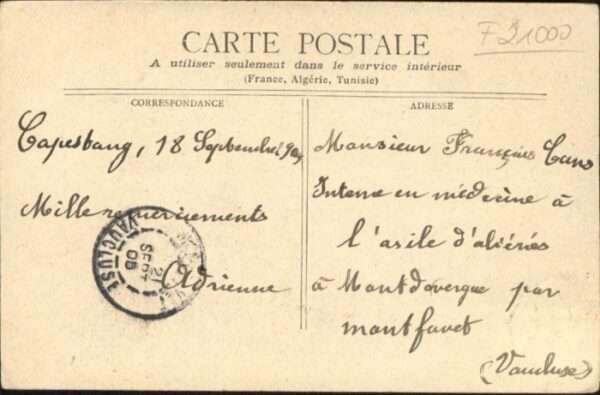 F21000
CARTE POSTALE
A utiliser seulement dans le service intérieur
(France, Algérie, Tunisie)
CORRESPONDANCE
Capestang, 18 Septembre
Mille remerciements
Adrienne
VAUCLUSE
21
SEPT
05
ADRESSE
Monsieur François
Interne en médecine à
l'asile d'aliénés
à Montdevergue par
montfavet
(Vaucluse)